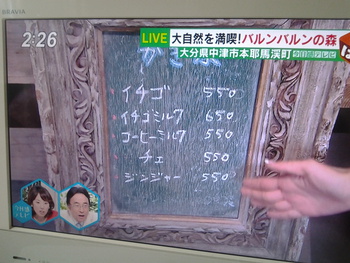 BRAVIA
2:26
LIVE 大自然を満喫!バルンバルンの森
大分県中津市本耶馬渓町
かき氷
イチゴ 550
イチゴミルク 650
コーヒーミルク 550
チェ 550
ジンジャー 550